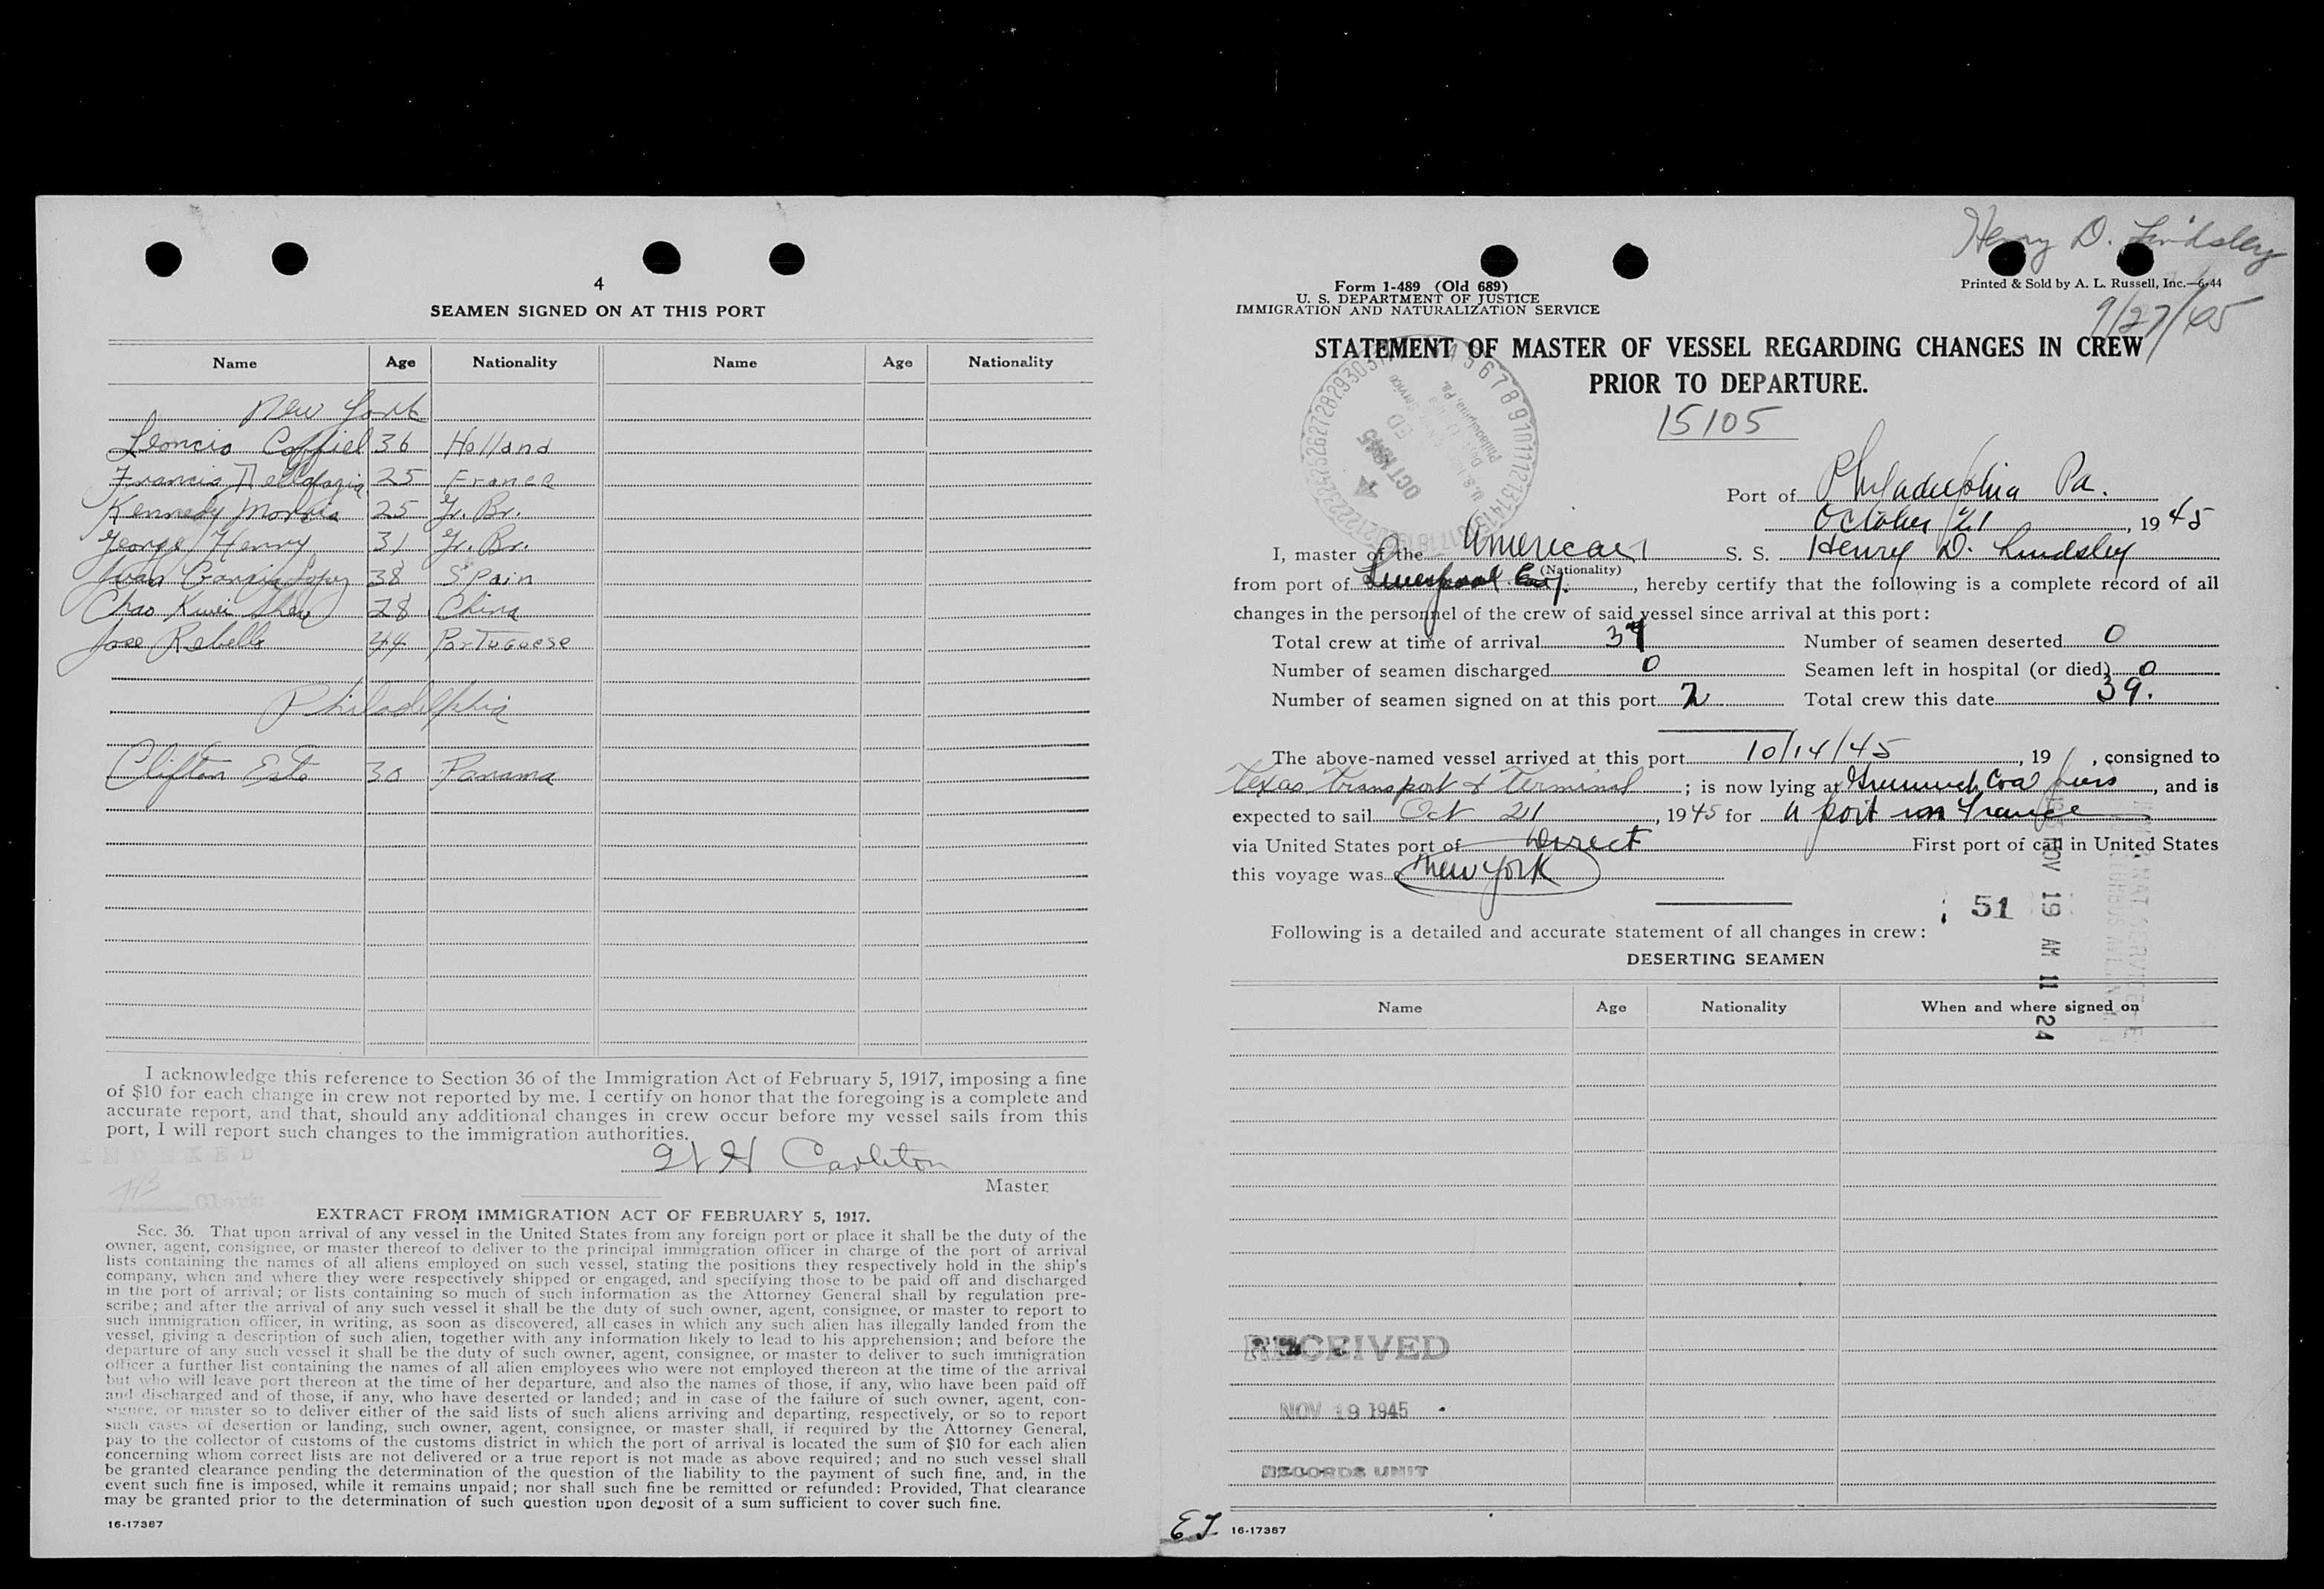 4
SEAMEN SIGNED ON AT THIS PORT
Name Age Nationality Name Age Nationality
New York
Leoncio Coffiel 36 Holland
Francis 25 France
Kennedy Morris 25 Gr. Br.
George Henry 31 Gr. Br.
Juan Garcia Lopez 38 Spain
Chao Kwei Shen 28 China
Jose Rebello 44 Portuguese
Philadelphia
Clifton 30 Panama
I acknowledge this reference to Section 36 of the Immigration Act of February 5, 1917, imposing a fine
of $10 for each change in crew not reported by me. I certify on honor that the foregoing is a complete and
accurate report, and that, should any additional changes in crew occur before my vessel sails from this
port, I will report such changes to the immigration authorities.
INDEXED
H Carleton
Master
Clerk
EXTRACT FROM IMMIGRATION ACT OF FEBRUARY 5, 1917.
Sec. 36. That upon arrival of any vessel in the United States from any foreign port or place it shall be the duty of the
owner, agent, consignee, or master thereof to deliver to the principal immigration officer in charge of the port of arrival
lists containing the names of all aliens employed on such vessel, stating the positions they respectively hold in the ship's
company, when and where they were respectively shipped or engaged, and specifying those to be paid off and discharged
in the port of arrival; or lists containing so much of such information as the Attorney General shall by regulation pre-
scribe; and after the arrival of any such vessel it shall be the duty of such owner, agent, consignee, or master to report to
such immigration officer, in writing, as soon as discovered, all cases in which any such alien has illegally landed from the
vessel, giving a description of such alien, together with any information likely to lead to his apprehension; and before the
departure of any such vessel it shall be the duty of such owner, agent, consignee, or master to deliver to such immigration
officer a further list containing the names of all alien employees who were not employed thereon at the time of the arrival
but who will leave port thereon at the time of her departure, and also the names of those, if any, who have been paid off
and discharged and of those, if any, who have deserted or landed; and in case of the failure of such owner, agent, con-
signee, or master so to deliver either of the said lists of such aliens arriving and departing, respectively, or so to report
such cases of desertion or landing, such owner, agent, consignee, or master shall, if required by the Attorney General,
pay to the collector of customs of the customs district in which the port of arrival is located the sum of $10 for each alien
concerning whom correct lists are not delivered or a true report is not made as above required; and no such vessel shall
be granted clearance pending the determination of the question of the liability to the payment of such fine, and, in the
event such fine is imposed, while it remains unpaid; nor shall such fine be remitted or refunded: Provided, That clearance
may be granted prior to the determination of such question upon deposit of a sum sufficient to cover such fine.
16-17387
Henry D. Lindsley
Form 1-489 (Old 689)
U. S. DEPARTMENT OF JUSTICE
IMMIGRATION AND NATURALIZATION SERVICE
Printed & Sold by A. L. Russell, Inc.—6-44
9/27/45
STATEMENT OF MASTER OF VESSEL REGARDING CHANGES IN CREW
PRIOR TO DEPARTURE.
15105
Port of Philadelphia Pa.
October 21, 1945
I, master of the American S. S. Henry D. Lindsley
(Nationality)
from port of Liverpool Eng., hereby certify that the following is a complete record of all
changes in the personnel of the crew of said vessel since arrival at this port:
Total crew at time of arrival 37 Number of seamen deserted 0
Number of seamen discharged 0 Seamen left in hospital (or died) 0
Number of seamen signed on at this port 2 Total crew this date 39.
The above-named vessel arrived at this port 10/14/45, 19 , consigned to
Texas Transport & Terminal; is now lying at Greenwich Coal Piers, and is
expected to sail Oct 21, 1945 for a port in France
via United States port of Direct First port of call in United States
this voyage was New York
51
1945 NOV 19 AM 11 24
Following is a detailed and accurate statement of all changes in crew:
DESERTING SEAMEN
Name Age Nationality When and where signed on
RECEIVED
NOV 19 1945
RECORDS UNIT
16-17387